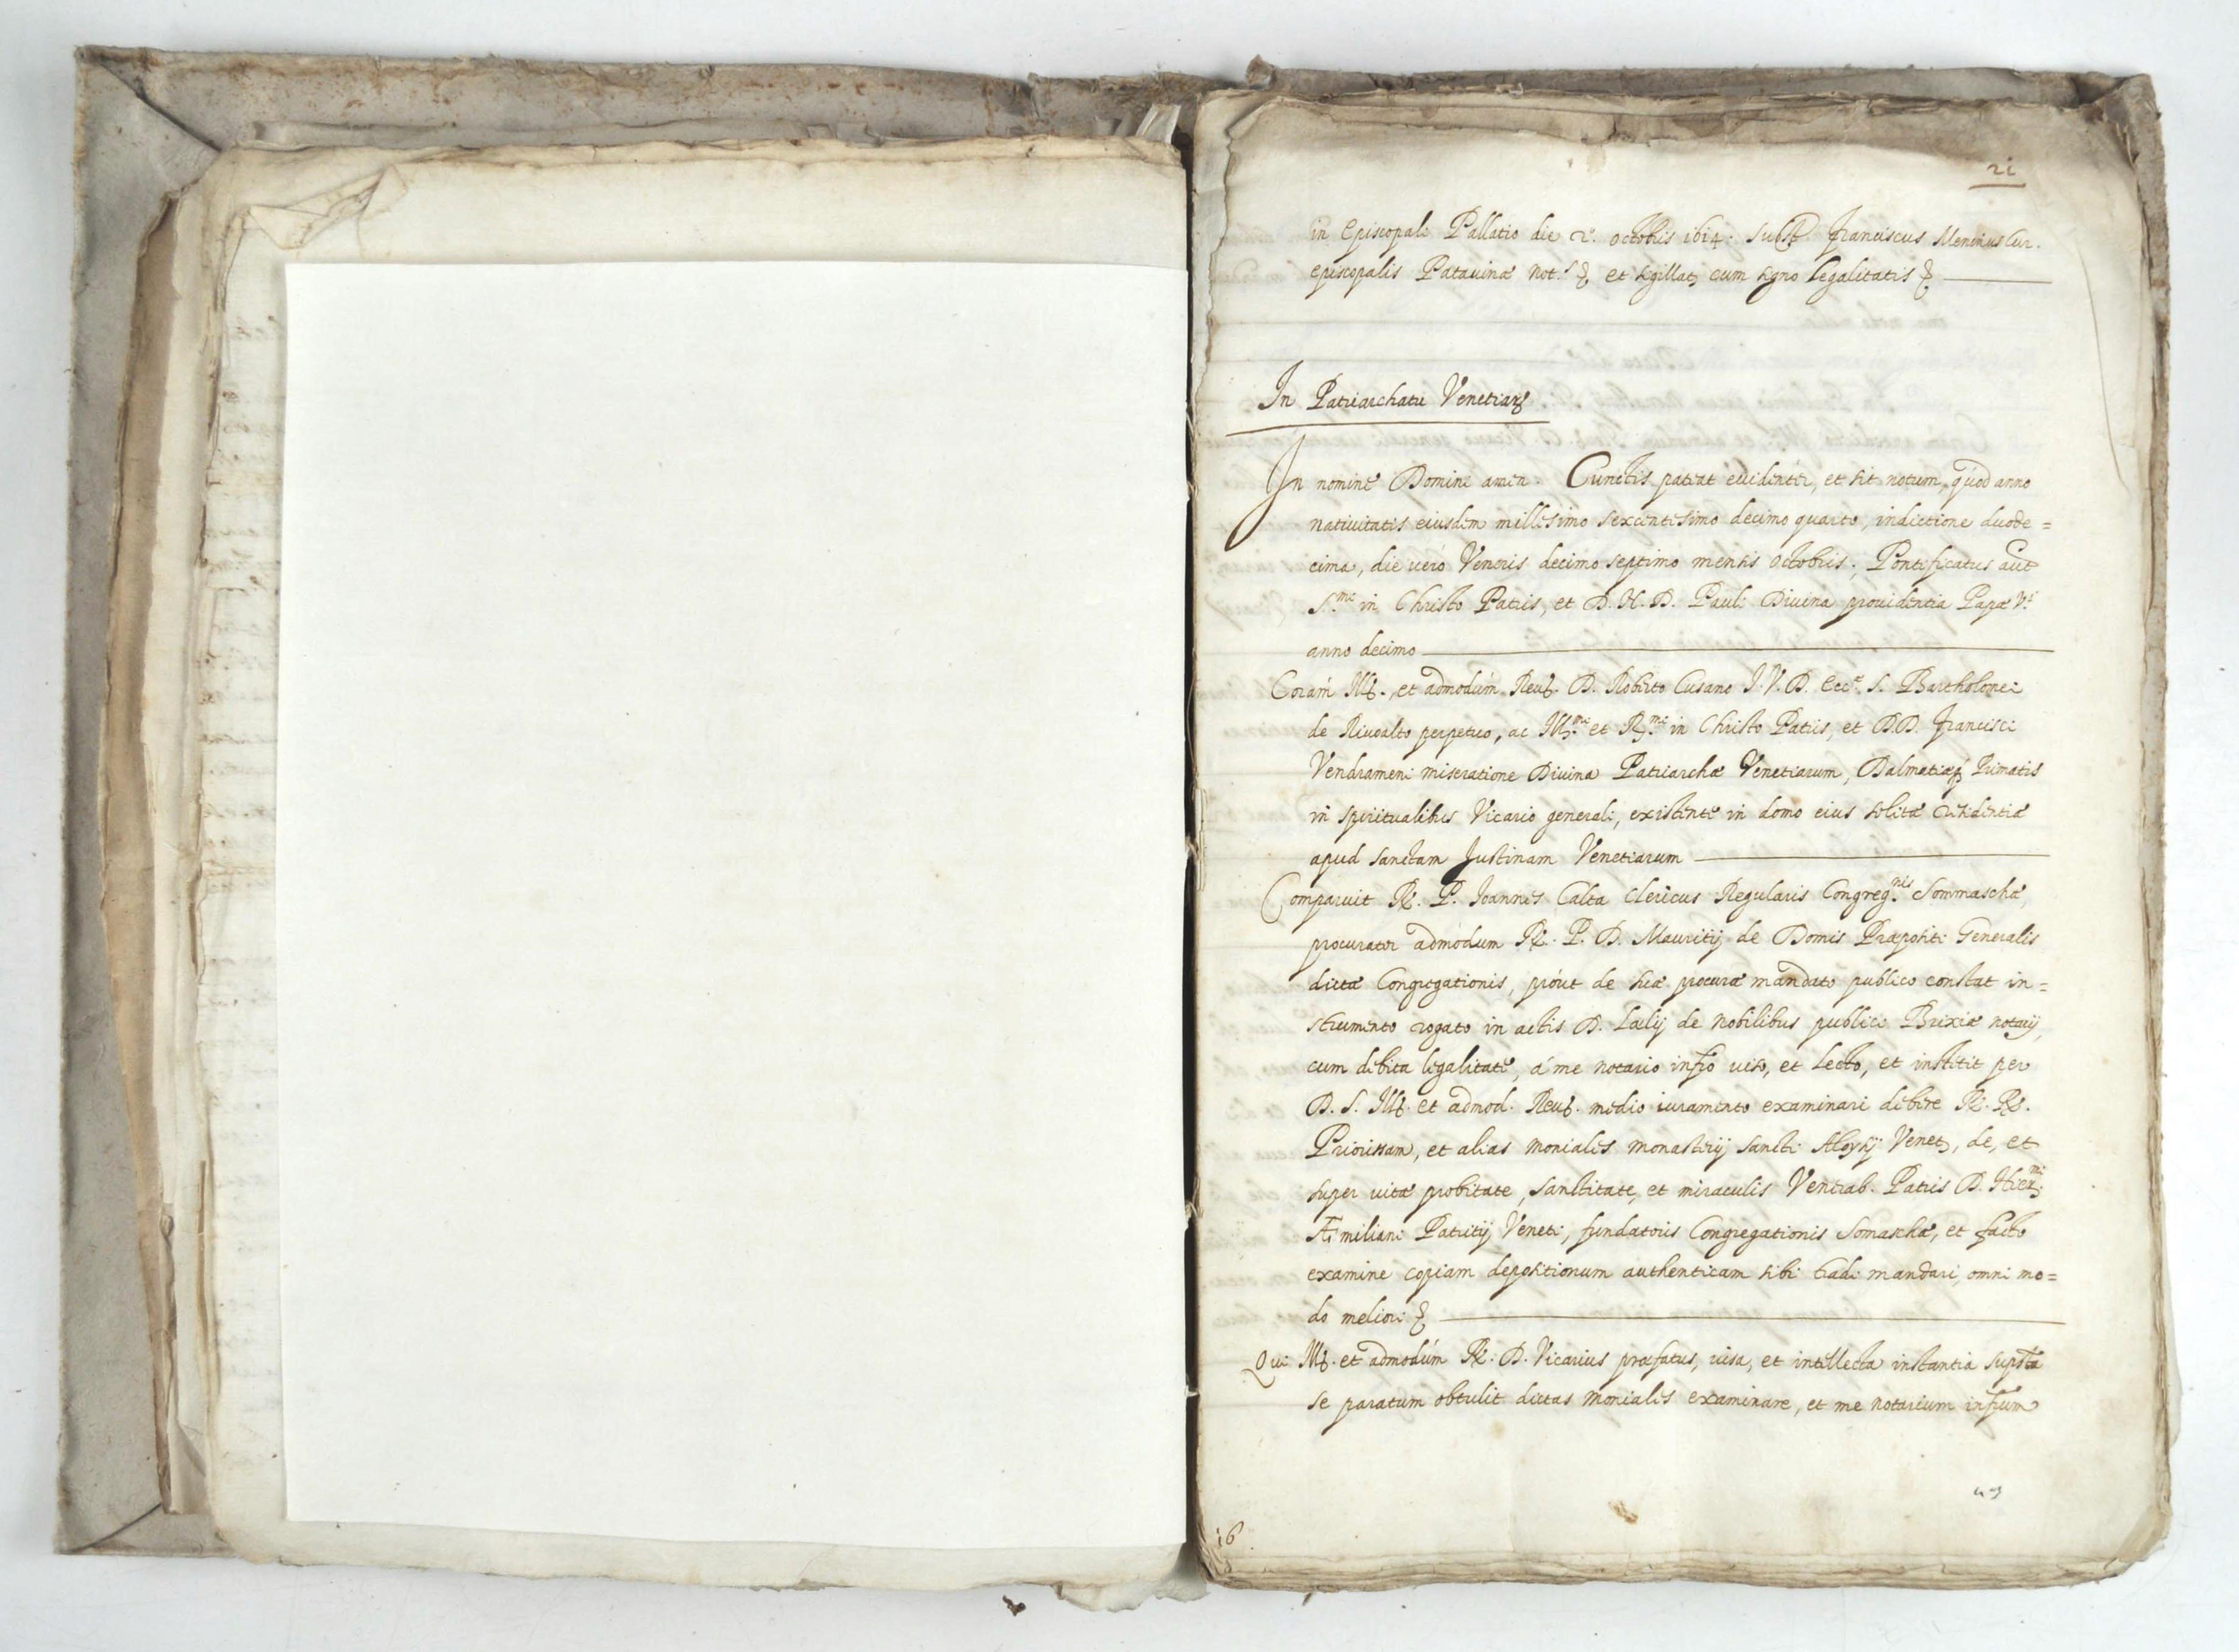 21
in Episcopali Pallatio die 2.º octobris 1614. Subst. Franciscus Meninus Cur.
episcopalis Patavinæ not.s &, et sigillat, cum signo legalitatis &
In Patriarchatu Venetiarȝ
In nomine Domini amen. Cunctis pateat evidenter, et sit notum, quod anno
nativitatis eiusdem millesimo sexcentesimo decimo quarto, indictione duode=
cima, die vero Veneris decimo septimo mensis octobris; Pontificatus aut
S.mi in Christo Patris, et D. N. D. Pauli Divina providentia Papæ V.ti
anno decimo
Coram Ill. et admodum Reu. D. Roberto Cusano I. V. D. Ecc.æ S. Bartholomei
de Rivoalto perpetuo, ac Ill.mi et R.mi in Christo Patris, et D.D. Francisci
Vendrameni miseratione Divina Patriarchæ Venetiarum, Dalmatiæq Primatis
in spiritualibus Vicario generali, existente in domo eius solitæ residentiæ
apud sanctam Justinam Venetiarum
Comparuit R. P. Joannes Calta Clericus Regularis Congreg.nis Sommaschæ,
procurator admodum R. P. D. Mauritij de Domis Præpositi Generalis
dictæ Congregationis, prout de sua procuræ mandato publico constat in=
strumento rogato in actis D. Lælij de Nobilibus publici Brixiæ notarij,
cum debita legalitate, á me notario infro viso, et lecto, et institit per
D. S. Ill. et admod. Reu. medio iuramento examinari debere R. R.
Priorissam, et alias moniales monasterij sancti Aloysij Venet, de, et
super vitæ probitate, sanctitate, et miraculis Venerab. Patris D. Hier.mi
Æmiliani Patritij Veneti, fundatoris Congregationis Somaschæ, et facto
examine copiam depositionum authenticam sibi tradi mandari, omni mo=
do meliori &
Qui Ill. et admodum R. D. Vicarius præfatus, visa, et intellecta instantia supsta
se paratum obtulit dictas moniales examinare, et me notarium infrum
16